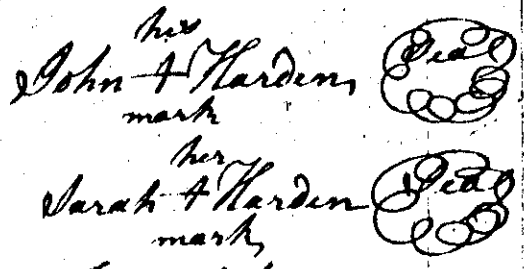 his
John + Harden Seal
mark
her
Sarah + Harden Seal
mark